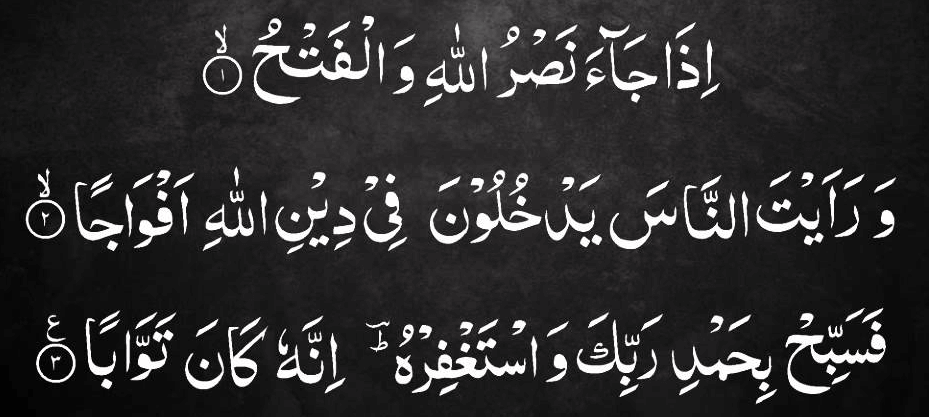 اِذَا جَآءَ نَصْرُ اللّٰهِ وَ الْفَتْحُۙ ۱
وَ رَاَیْتَ النَّاسَ یَدْخُلُوْنَ فِیْ دِیْنِ اللّٰهِ اَفْوَاجًاۙ ۲
فَسَبِّحْ بِحَمْدِ رَبِّكَ وَ اسْتَغْفِرْهُ ؔؕ اِنَّهٗ كَانَ تَوَّابًا ع ۳